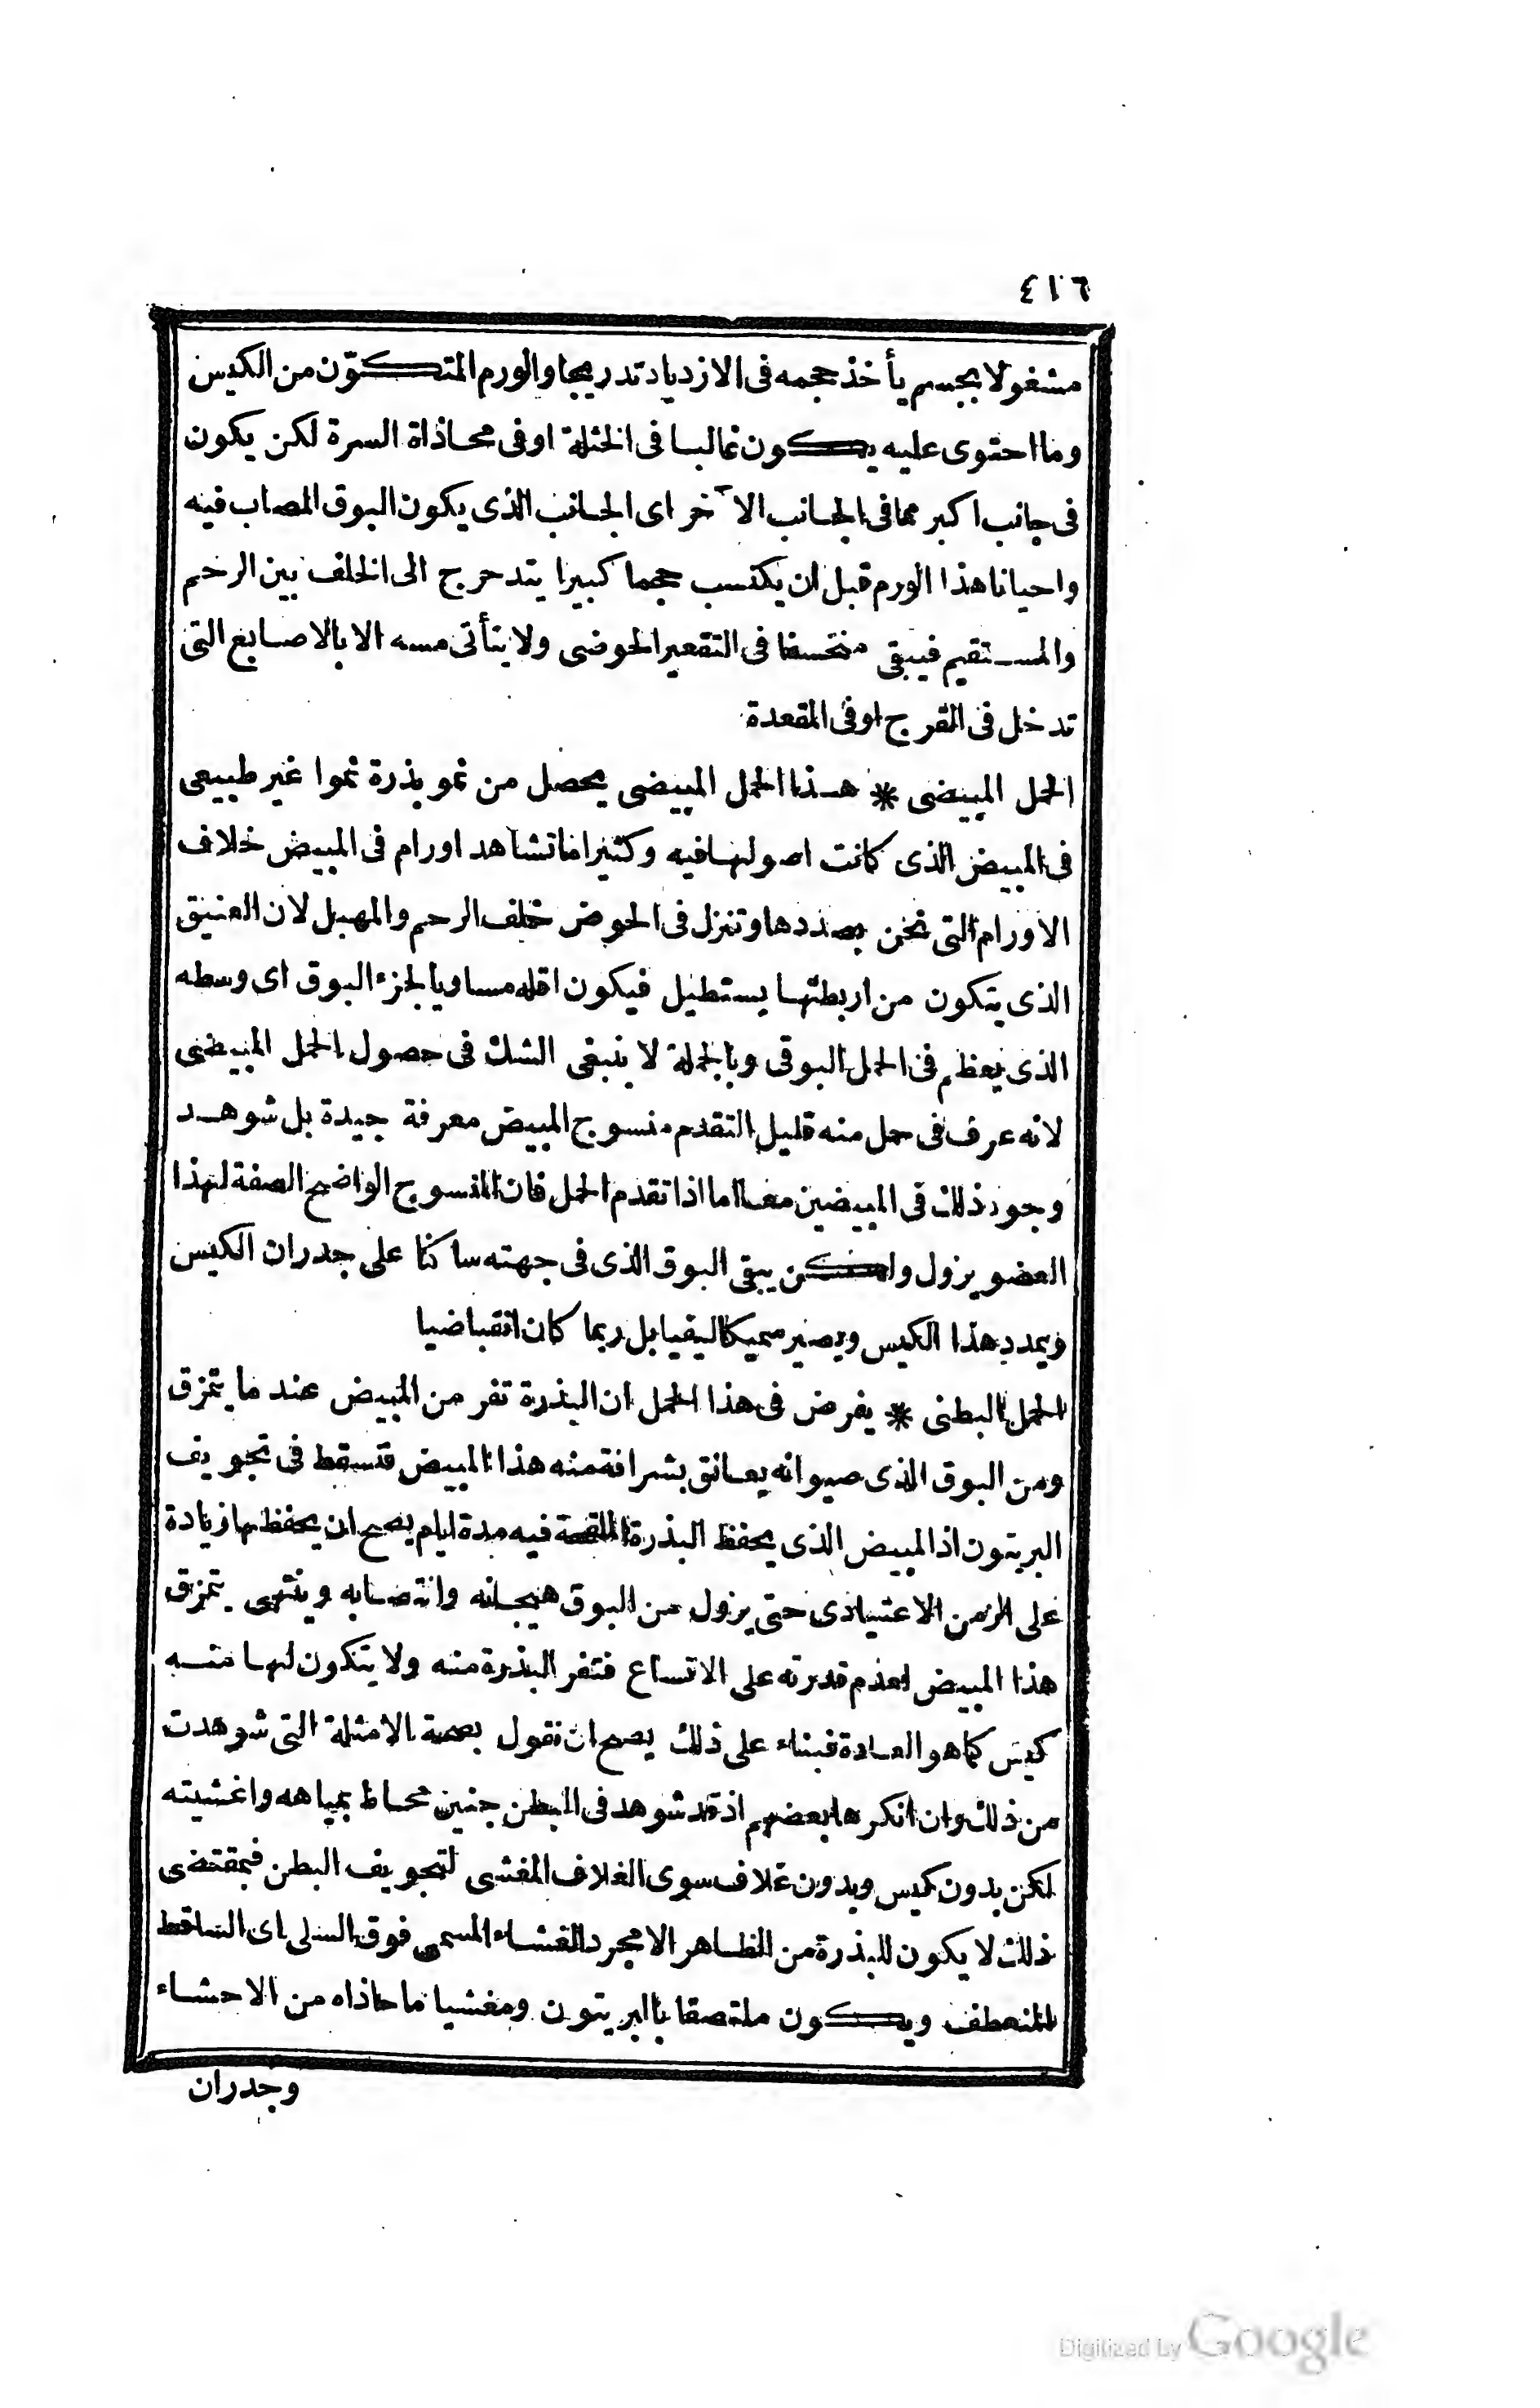 ٤١٦
مشغولا بجسم يأخذ حجمه فى الازدياد تدريجا والورم المتكوّن من الكيس
وما احتوى عليه يكون غالبا فى الخثلة او فى محاذاة السرة لكن يكون
فى جانب اكبر مما فى الجانب الآخر اى الجانب الذى يكون البوق المصاب فيه
واحيانا هذا الورم قبل ان يكتسب حجما كبيرا يتدحرج الى الخلف بين الرحم
والمستقيم فيبقى منخسفا فى التقعير الحوضى ولا يتأتى مسه الا بالاصابع التى
تدخل فى الفرج او فى المقعدة
الحمل المبيضى * هذا الحمل المبيضى يحصل من نمو بذرة نموا غير طبيعى
فى المبيض الذى كانت اصولها فيه وكثيرا ما تشاهد اورام فى المبيض خلاف
الاورام التى نحن بصددها وتنزل فى الحوض خلف الرحم والمهبل لان العنيق
الذى يتكون من اربطتها يستطيل فيكون اقله مساويا لجزء البوق اى وسطه
الذى يعظم فى الحمل البوقى وبالجملة لا ينبغى الشك فى حصول الحمل المبيضى
لانه عرف فى حمل منه قليل التقدم منسوج المبيض معرفة جيدة بل شوهد
وجود ذلك فى المبيضين معا اما اذا تقدم الحمل فان المنسوج الواضح الصفة لهذا
العضو يزول ولكن يبقى البوق الذى فى جهته ساكنا على جدران الكيس
ويمدد هذا الكيس ويصير سميكا ليفيا بل ربما كان انقباضيا
الحمل البطنى * يفرض فى هذا الحمل ان البذرة تفر من المبيض عند ما يتمزق
ومن البوق الذى صيوانه يعانق بشرافة منه هذا المبيض فتسقط فى تجويف
البريتون اذ المبيض الذى يحفظ البذرة الملقحة فيه مدة ايام يصح ان يحفظها زيادة
على الزمن الاعتيادى حتى يزول من البوق هيجانه وانتصابه وينتهى بتمزق
هذا المبيض لعدم قدرته على الاتساع فتفر البذرة منه ولا يتكون لها منه
كيس كما هو العادة فبناء على ذلك يصح ان نقول بصحة الامثلة التى شوهدت
من ذلك وان انكرها بعضهم اذ قد شوهد فى البطن جنين محاط بمياهه واغشيته
لكن بدون كيس وبدون غلاف سوى الغلاف المغشى لتجويف البطن فبمقتضى
ذلك لا يكون للبذرة من الظاهر الا مجرد الغشاء المسمى فوق السلى اى الساقط
المنعطف ويكون ملتصقا بالبريتون ومغشيا ما حاذاه من الاحشاء
وجدران
Digitized by Google